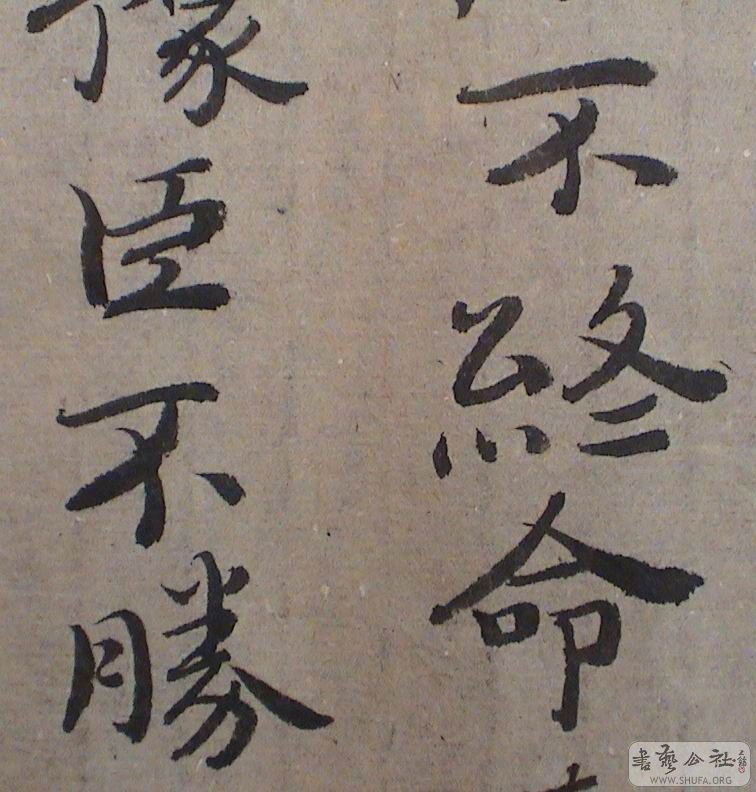 不終命
豫臣不勝
書藝公社
WWW.SHUFA.ORG